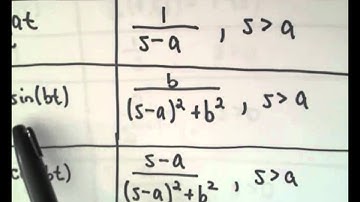 at 1/(s-a) , s>a
sin(bt) b/((s-a)²+b²) , s>a
bt) s-a/((s-a)²+b²) , s>a